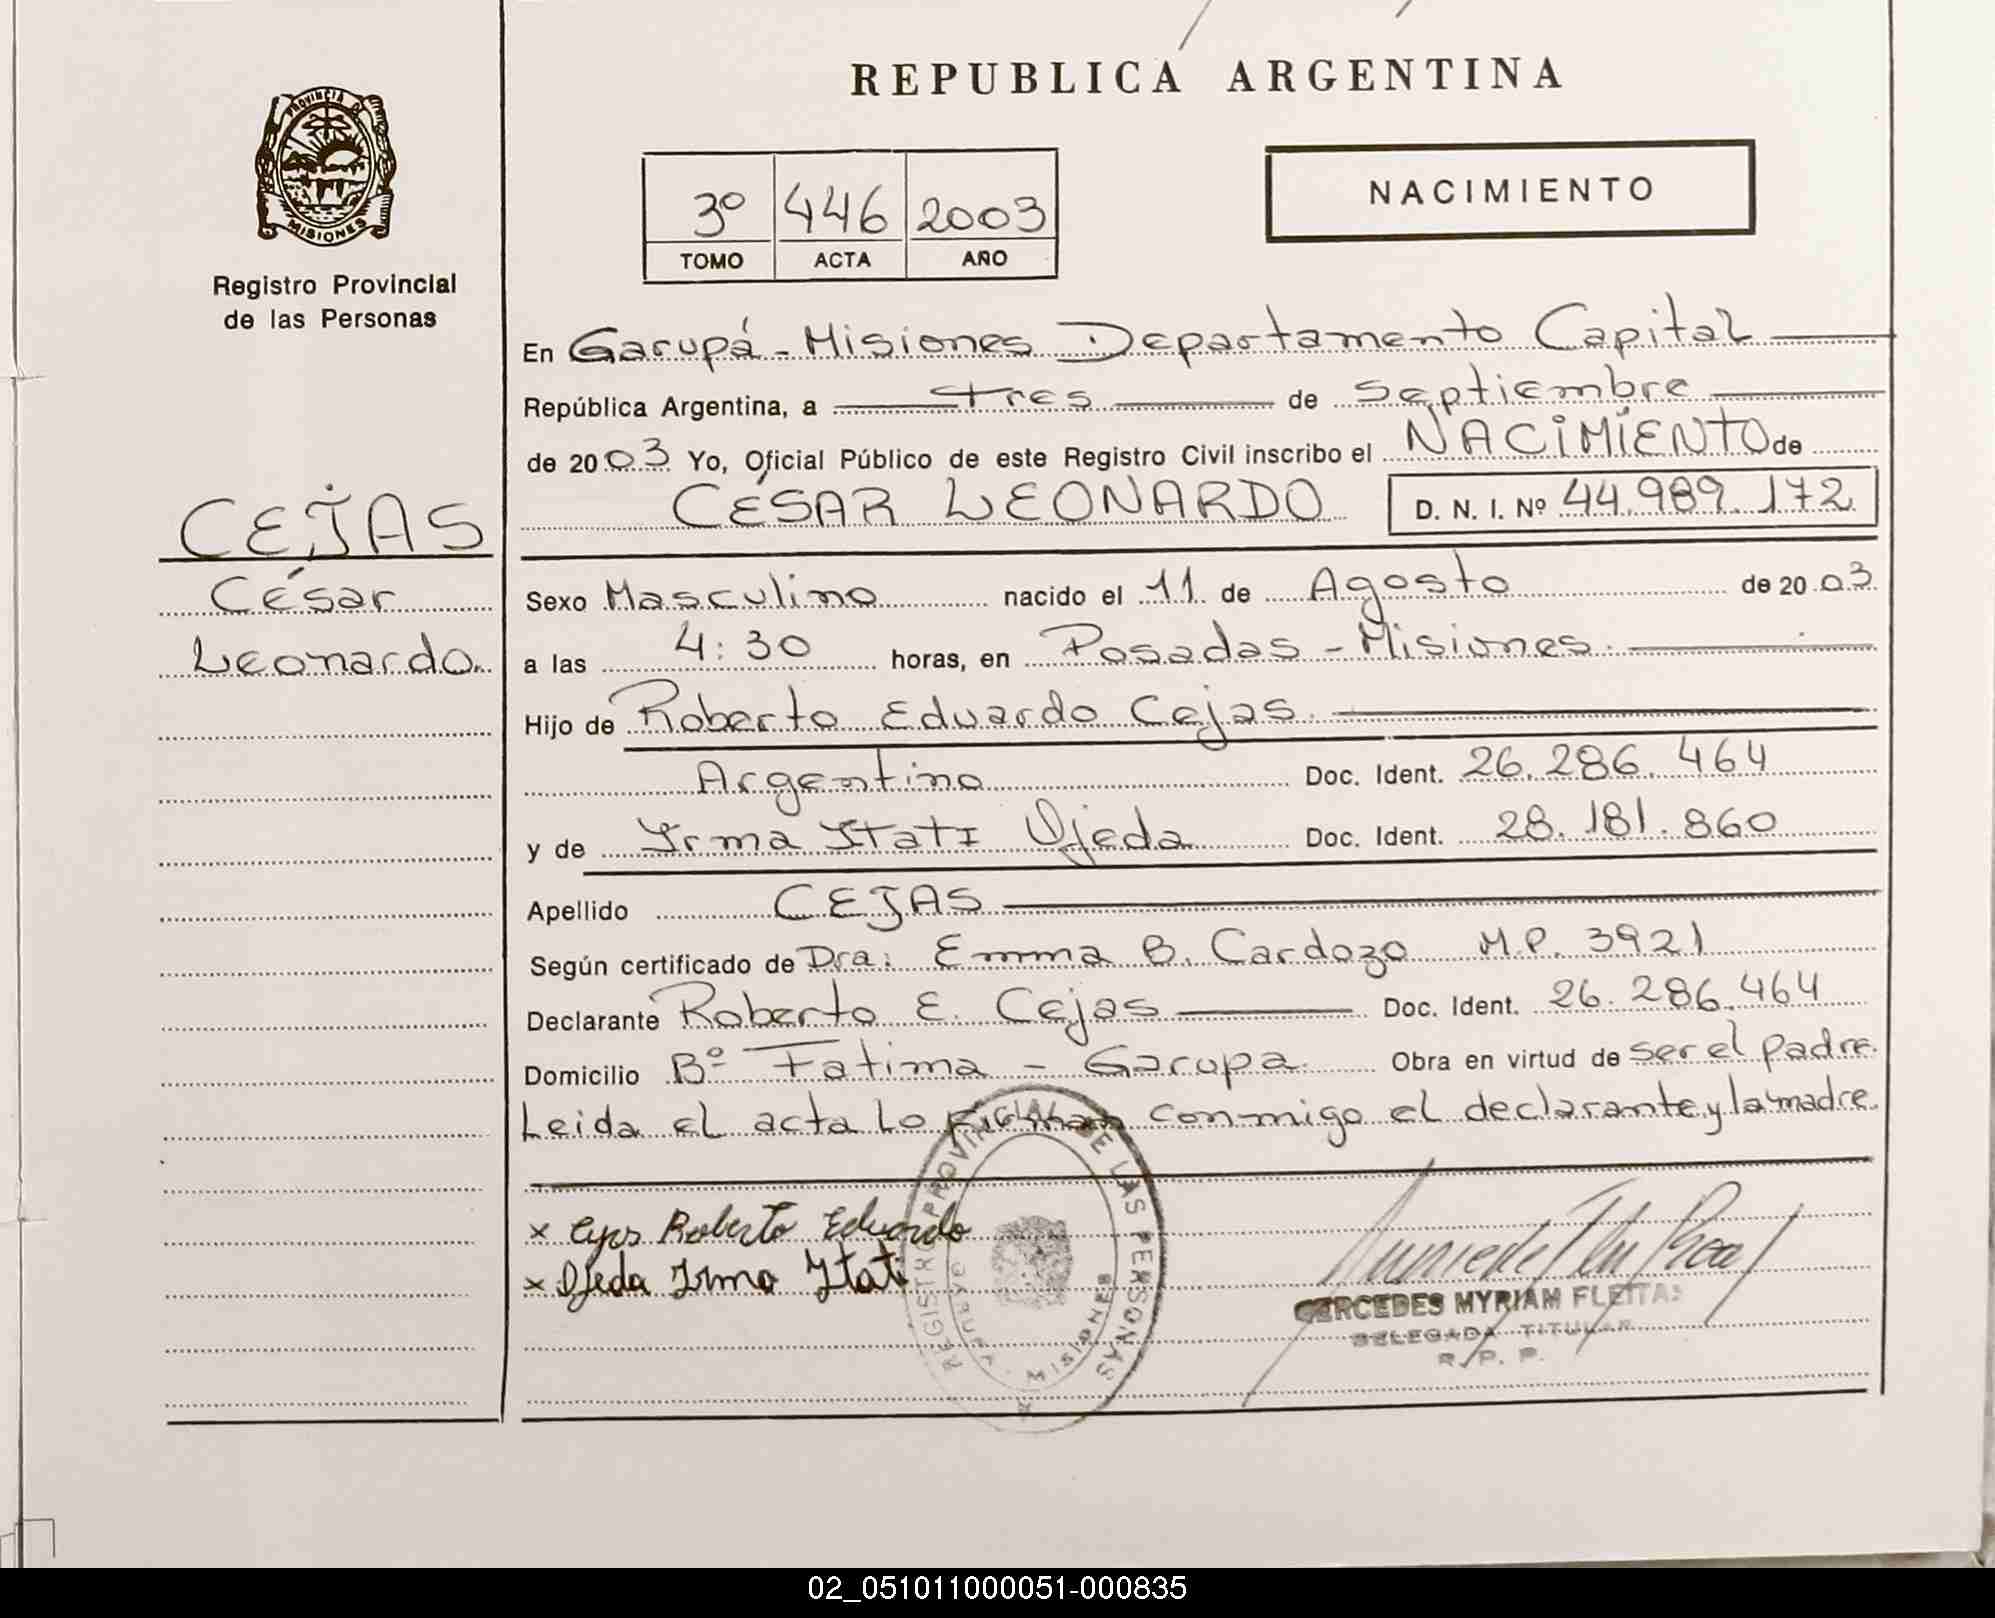 REPUBLICA ARGENTINA
PROVINCIA DE
MISIONES
Registro Provincial
de las Personas
3º 446 2003
TOMO ACTA AÑO
NACIMIENTO
En Garupá - Misiones Departamento Capital
República Argentina, a tres de septiembre
de 2003 Yo, Oficial Público de este Registro Civil inscribo el NACIMIENTO de
CÉSAR LEONARDO D. N. I. Nº 44.989.172
CEJAS
César
Leonardo
Sexo Masculino nacido el 11 de Agosto de 2003
a las 4:30 horas, en Posadas - Misiones.
Hijo de Roberto Eduardo Cejas.
Argentino Doc. Ident. 26.286.464
y de Irma Itatí Ojeda Doc. Ident. 28.181.860
Apellido CEJAS
Según certificado de Dra: Emma B. Cardozo M.P. 3921
Declarante Roberto E. Cejas Doc. Ident. 26.286.464
Domicilio Bº Fatima - Garupa. Obra en virtud de ser el padre.
Leida el acta lo firman conmigo el declarante y la madre.
x Cejas Roberto Eduardo
x Ojeda Irma Itati
REGISTRO PROVINCIAL DE LAS PERSONAS
MISIONES
MERCEDES MYRIAM FLEITAS
DELEGADA TITULAR
R. P. P.
02_051011000051-000835